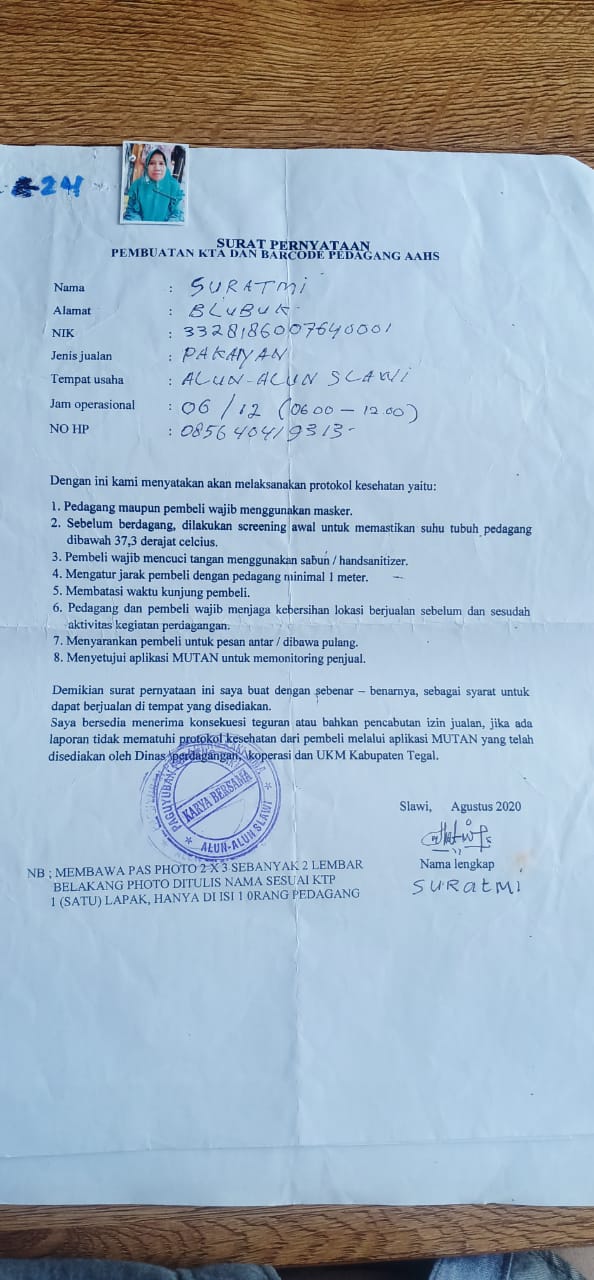 24
SURAT PERNYATAAN
PEMBUATAN KTA DAN BARCODE PEDAGANG AAHS
Nama : SURATMI
Alamat : BLUBUK
NIK : 3328186007640001
Jenis jualan : PAKAIAN
Tempat usaha : ALUN-ALUN SLAWI
Jam operasional : 06/12 (06 00 - 12 00)
NO HP : 085640419313-
Dengan ini kami menyatakan akan melaksanakan protokol kesehatan yaitu:
1. Pedagang maupun pembeli wajib menggunakan masker.
2. Sebelum berdagang, dilakukan screening awal untuk memastikan suhu tubuh pedagang
dibawah 37,3 derajat celcius.
3. Pembeli wajib mencuci tangan menggunakan sabun / handsanitizer.
4. Mengatur jarak pembeli dengan pedagang minimal 1 meter.
5. Membatasi waktu kunjung pembeli.
6. Pedagang dan pembeli wajib menjaga kebersihan lokasi berjualan sebelum dan sesudah
aktivitas kegiatan perdagangan.
7. Menyarankan pembeli untuk pesan antar / dibawa pulang.
8. Menyetujui aplikasi MUTAN untuk memonitoring penjual.
Demikian surat pernyataan ini saya buat dengan sebenar – benarnya, sebagai syarat untuk
dapat berjualan di tempat yang disediakan.
Saya bersedia menerima konsekuesi teguran atau bahkan pencabutan izin jualan, jika ada
laporan tidak mematuhi protokol kesehatan dari pembeli melalui aplikasi MUTAN yang telah
disediakan oleh Dinas perdagangan, koperasi dan UKM Kabupaten Tegal.
PAGUYUBAN
KARYA BERSAMA
* ALUN-ALUN SLAWI *
Slawi, Agustus 2020
Nama lengkap
SURATMI
NB ; MEMBAWA PAS PHOTO 2 X 3 SEBANYAK 2 LEMBAR
BELAKANG PHOTO DITULIS NAMA SESUAI KTP
1 (SATU) LAPAK, HANYA DI ISI 1 0RANG PEDAGANG